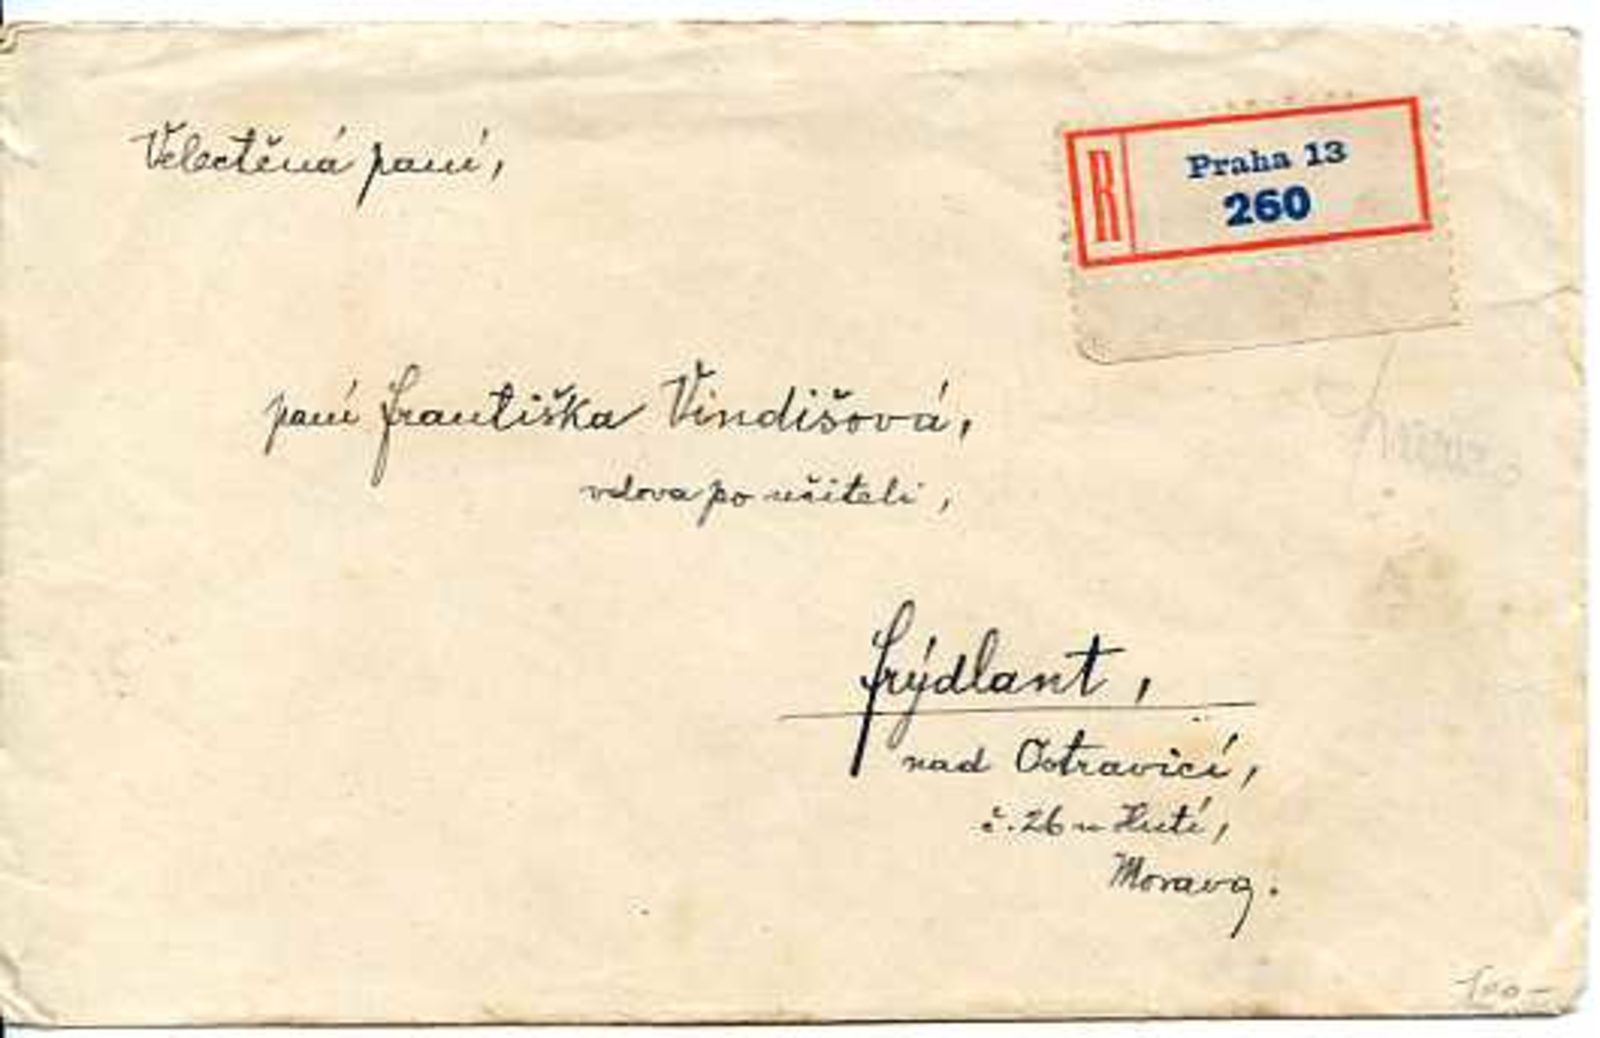 Velectěná paní,
R
Praha 13
260
paní Františka Vindišová,
vdova po učiteli,
Frýdlant,
nad Ostravicí,
č. 26 u Hutí,
Morava.
100-